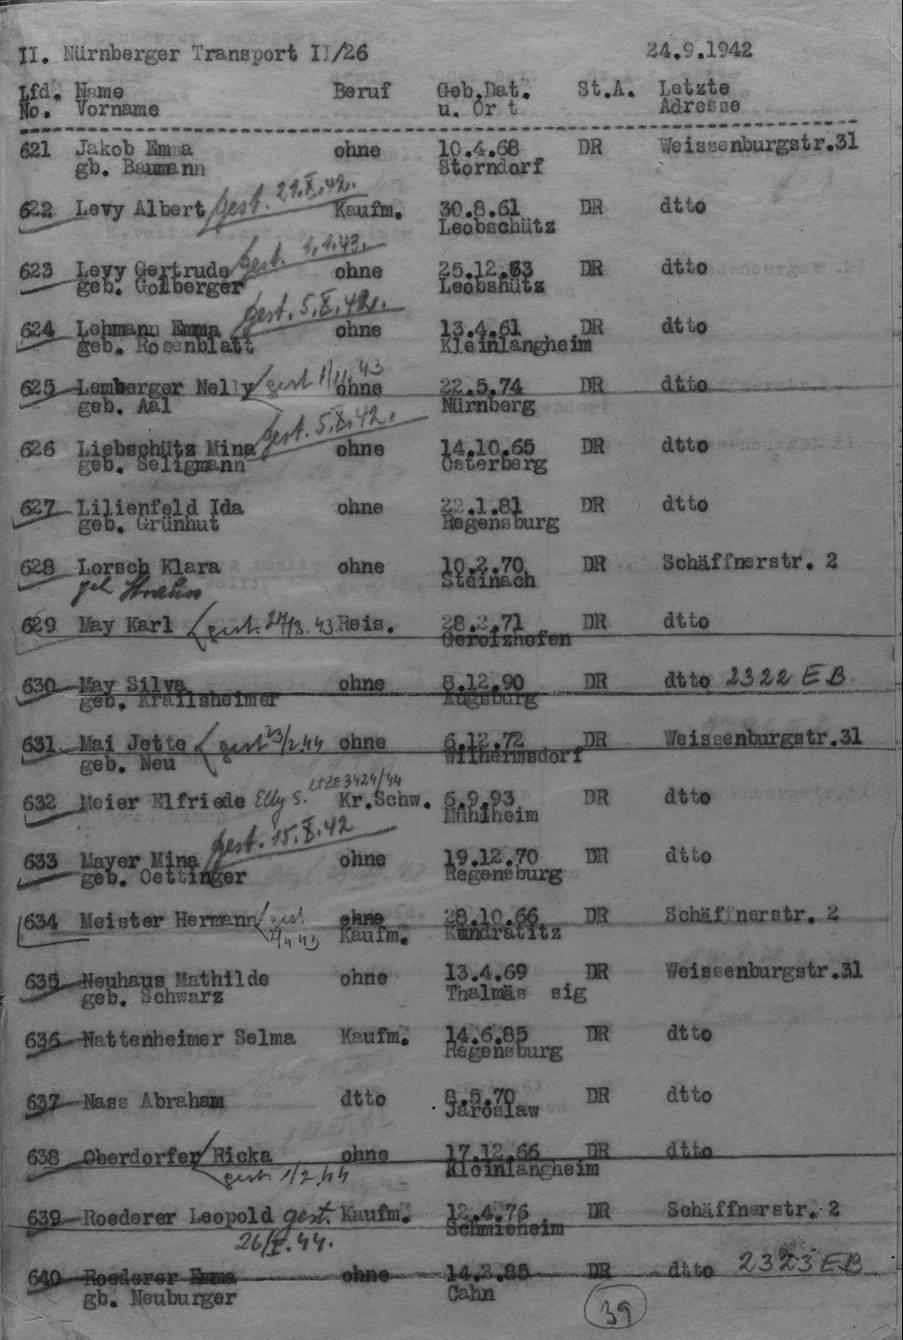 II. Nürnberger Transport II/26 24.9.1942
Lfd. Name Beruf Geb.Dat. St.A. Letzte
No. Vorname u. Ort Adresse
621 Jakob Emma ohne 10.4.68 DR Weissenburgstr.31
gb. Baumann Storndorf
gest. 29.X.42.
622 Levy Albert Kaufm. 30.8.61 DR dtto
Leobschütz
gest. 1.1.43.
623 Levy Gertrude ohne 25.12.63 DR dtto
geb. Golberger Leobshütz
gest. 5.X.42.
624 Lehmann Emma ohne 13.4.61 DR dtto
geb. Rosenblatt Kleinlangheim
625 Lemberger Nelly gest 43 ohne 22.5.74 DR dtto
geb. Aal Nürnberg
gest. 5.X.42.
626 Liebschütz Mina ohne 14.10.65 DR dtto
geb. Seligmann Osterberg
627 Lilienfeld Ida ohne 22.1.81 DR dtto
geb. Grünhut Regensburg
628 Lorsch Klara ohne 10.2.70 DR Schäffnerstr. 2
geb Strauss Steinach
629 May Karl gest. 43 Reis. 28.2.71 DR dtto
Gerolzhofen
630 May Silva ohne 8.12.90 DR dtto 2322 EB
geb. Krailsheimer Augsburg
631 Mai Jette gest 23/2.44 ohne 6.12.72 DR Weissenburgstr.31
geb. Neu Wilhermsdorf
632 Meier Elfriede Elly S. 3424/44 Kr.Schw. 6.9.93 DR dtto
Mühlheim
gest. 15.X.42
633 Mayer Mina ohne 19.12.70 DR dtto
geb. Oettinger Regensburg
634 Meister Hermann gest. ohne 28.10.66 DR Schäffnerstr. 2
43 Kaufm. Kundratitz
635 Neuhaus Mathilde ohne 13.4.69 DR Weissenburgstr.31
geb. Schwarz Thalmäs sig
636 Nattenheimer Selma Kaufm. 14.6.85 DR dtto
Regensburg
637 Nass Abraham dtto 8.5.70 DR dtto
Jaroslaw
638 Oberdorfer Ricka ohne 17.12.66 DR dtto
gest. 1/2.44 Kleinlangheim
639 Roederer Leopold gest. Kaufm. 12.4.76 DR Schäffnerstr. 2
26/I.44. Schmieheim
640 Roederer Emma ohne 14.2.85 DR dtto 2323 EB
gb. Neuburger Cahn
39